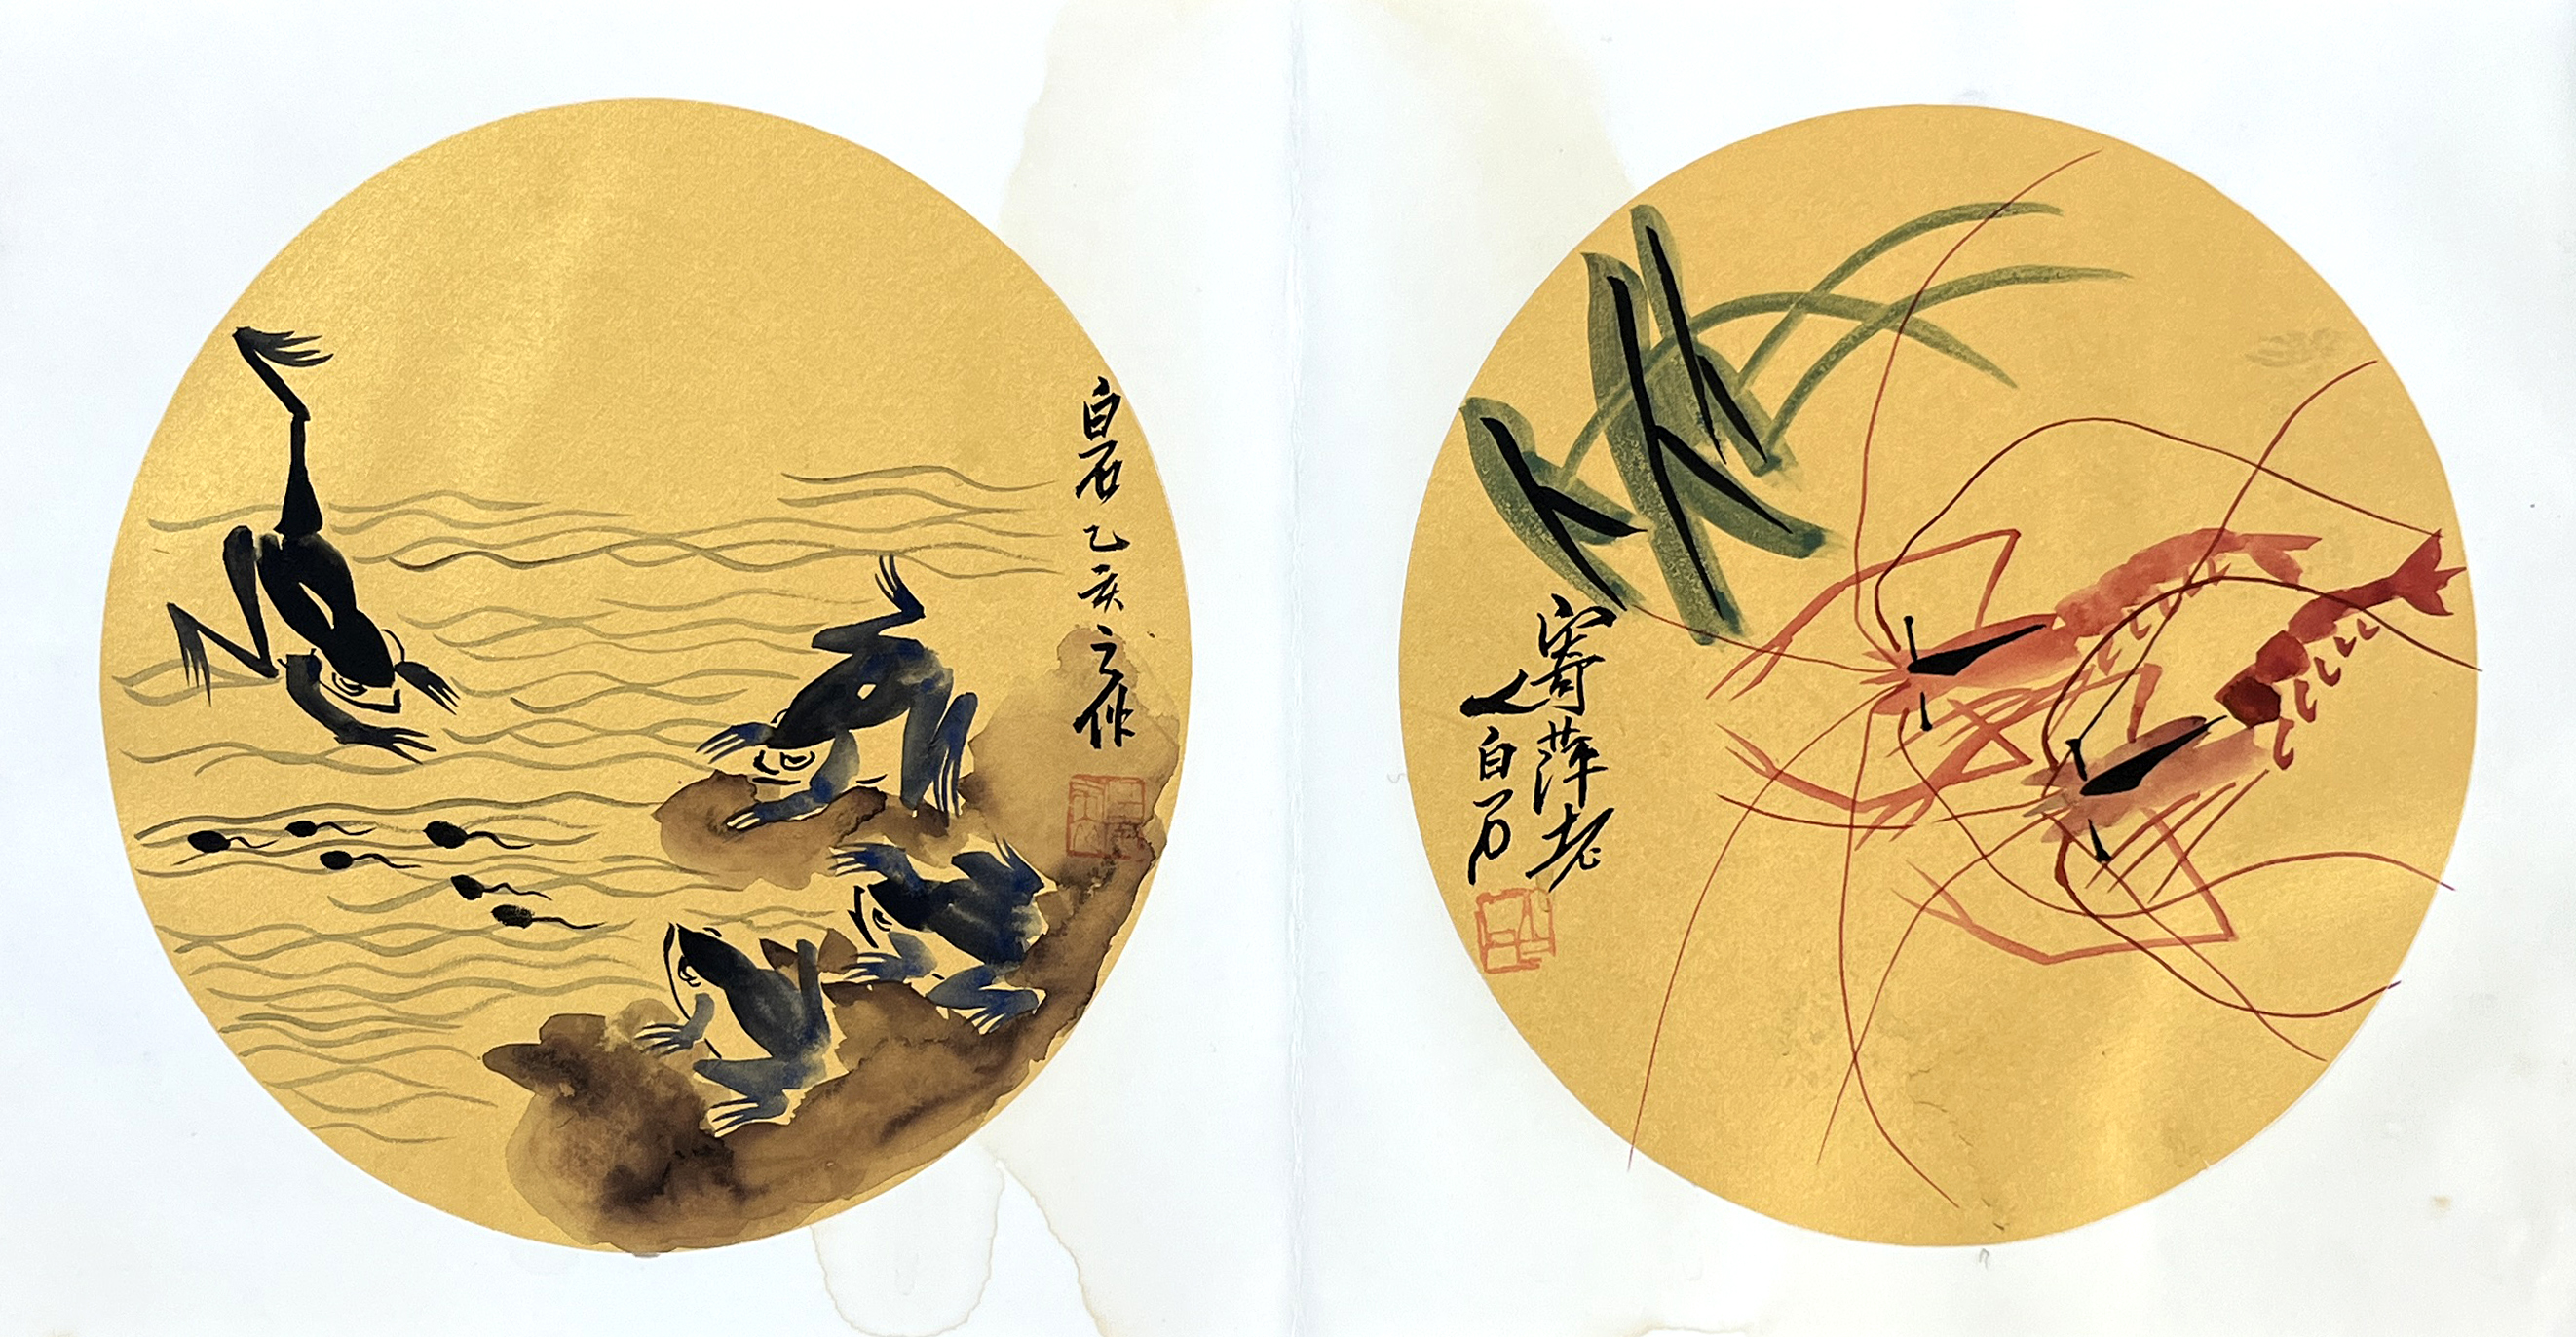 寄萍老
人白石
白石乙亥之作